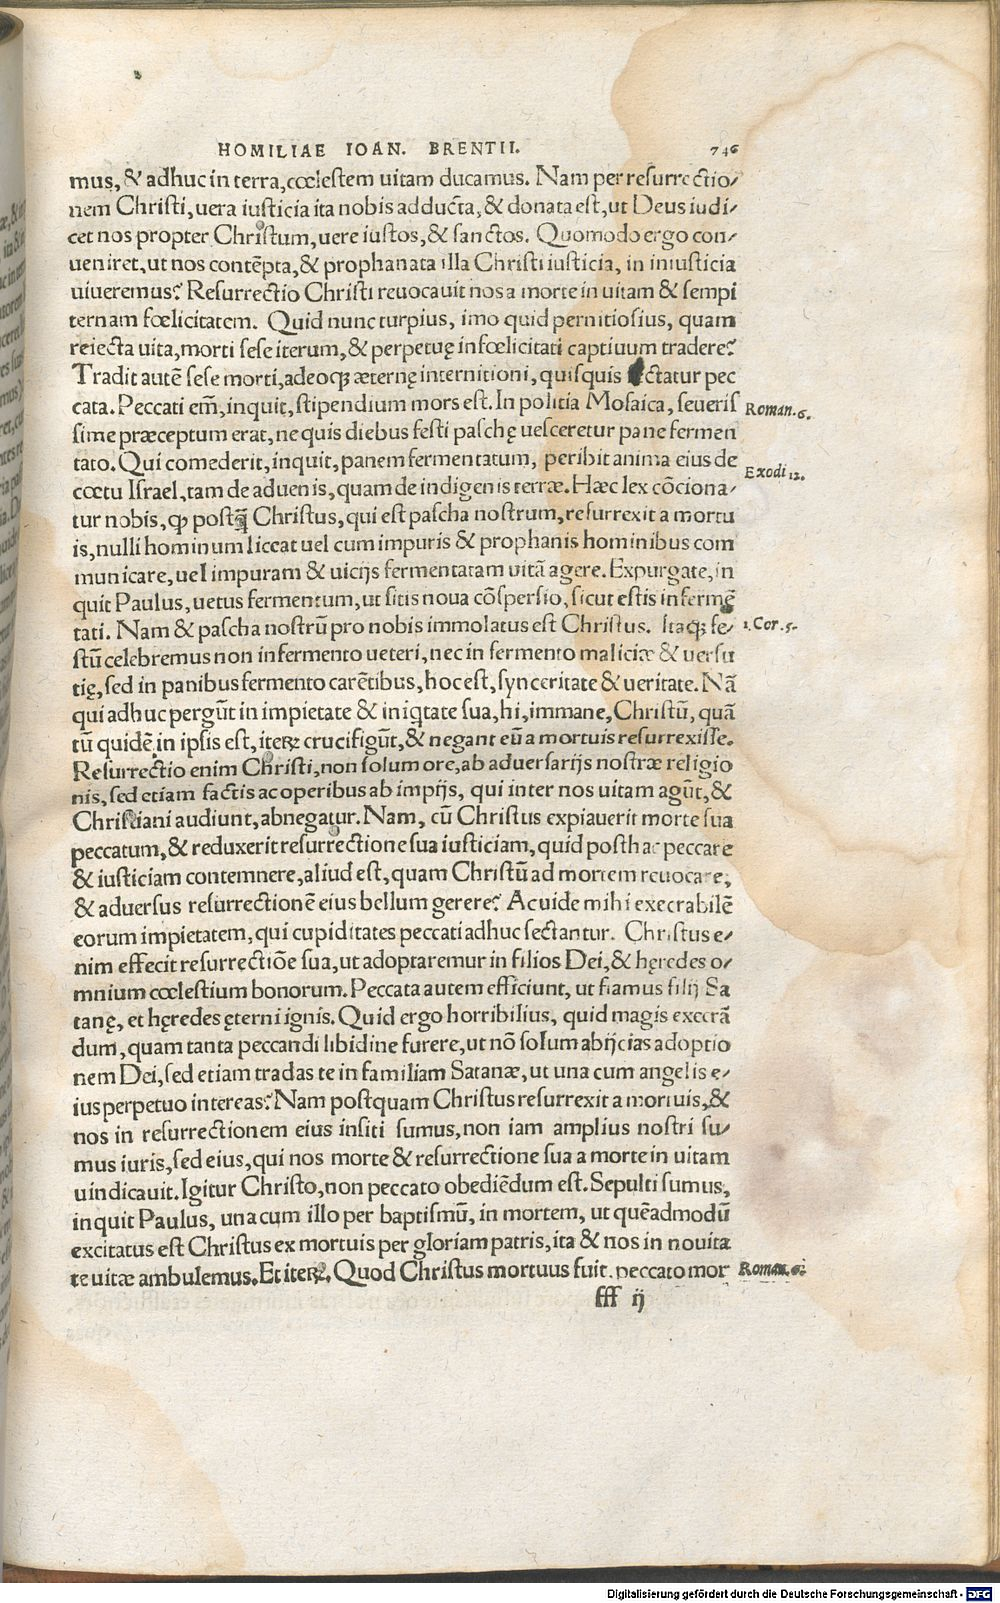 HOMILIAE IOAN. BRENTII. 746
mus, & adhuc in terra, cœlestem uitam ducamus. Nam per resurrectio-
nem Christi, uera iusticia ita nobis adducta, & donata est, ut Deus iudi-
cet nos propter Christum, uere iustos, & sanctos. Quomodo ergo con-
ueniret, ut nos contẽpta, & prophanata illa Christi iusticia, in iniusticia
uiueremus? Resurrectio Christi reuocauit nos a morte in uitam & sempi
ternam fœlicitatem. Quid nunc turpius, imo quid pernitiosius, quam
reiecta uita, morti sese iterum, & perpetuę infœlicitati captiuum tradere?
Tradit autẽ sese morti, adeoq; æternę internitioni, quisquis sectatur pec
cata. Peccati em̃, inquit, stipendium mors est. In politia Mosaica, seueris
Roman. 6.
sime præceptum erat, ne quis diebus festi paschę uesceretur pane fermen
tato. Qui comederit, inquit, panem fermentatum, peribit anima eius de
Exodi 12.
cœtu Israel, tam de aduenis, quam de indigenis terræ. Hæc lex cõciona-
tur nobis, ꝙ postꝗ̃ Christus, qui est pascha nostrum, resurrexit a mortu
is, nulli hominum liceat uel cum impuris & prophanis hominibus com
municare, uel impuram & uicijs fermentatam uitã agere. Expurgate, in
quit Paulus, uetus fermentum, ut sitis noua cõspersio, sicut estis infermẽ
tati. Nam & pascha nostrũ pro nobis immolatus est Christus. Itaq; fe-
1. Cor. 5.
stũ celebremus non in fermento ueteri, nec in fermento maliciæ & uersu
tię, sed in panibus fermento carẽtibus, hoc est, synceritate & ueritate. Nã
qui adhuc pergũt in impietate & iniq̃tate sua, hi, immane, Christũ, quã
tũ quidẽ in ipsis est, iteꝝ crucifigũt, & negant eũ a mortuis resurrexisse.
Resurrectio enim Christi, non solum ore, ab aduersarijs nostræ religio
nis, sed etiam factis ac operibus ab impijs, qui inter nos uitam agũt, &
Christiani audiunt, abnegatur. Nam, cũ Christus expiauerit morte sua
peccatum, & reduxerit resurrectione sua iusticiam, quid posthac peccare
& iusticiam contemnere, aliud est, quam Christũ ad mortem reuocare,
& aduersus resurrectionẽ eius bellum gerere? Ac uide mihi execrabilẽ
eorum impietatem, qui cupiditates peccati adhuc sectantur. Christus e-
nim effecit resurrectiõe sua, ut adoptaremur in filios Dei, & hęredes o-
mnium cœlestium bonorum. Peccata autem efficiunt, ut fiamus filij Sa
tanę, et hęredes ęterni ignis. Quid ergo horribilius, quid magis execrã
dum, quam tanta peccandi libidine furere, ut nõ solum abijcias adoptio
nem Dei, sed etiam tradas te in familiam Satanæ, ut una cum angelis e-
ius perpetuo intereas? Nam postquam Christus resurrexit a mortuis, &
nos in resurrectionem eius insiti sumus, non iam amplius nostri su-
mus iuris, sed eius, qui nos morte & resurrectione sua a morte in uitam
uindicauit. Igitur Christo, non peccato obediẽdum est. Sepulti sumus,
inquit Paulus, una cum illo per baptismũ, in mortem, ut quẽadmodũ
excitatus est Christus ex mortuis per gloriam patris, ita & nos in nouita
te uitæ ambulemus. Et iteꝝ, Quod Christus mortuus fuit, peccato mor
Roman. 6.
fff ij
Digitalisierung gefördert durch die Deutsche Forschungsgemeinschaft - DFG